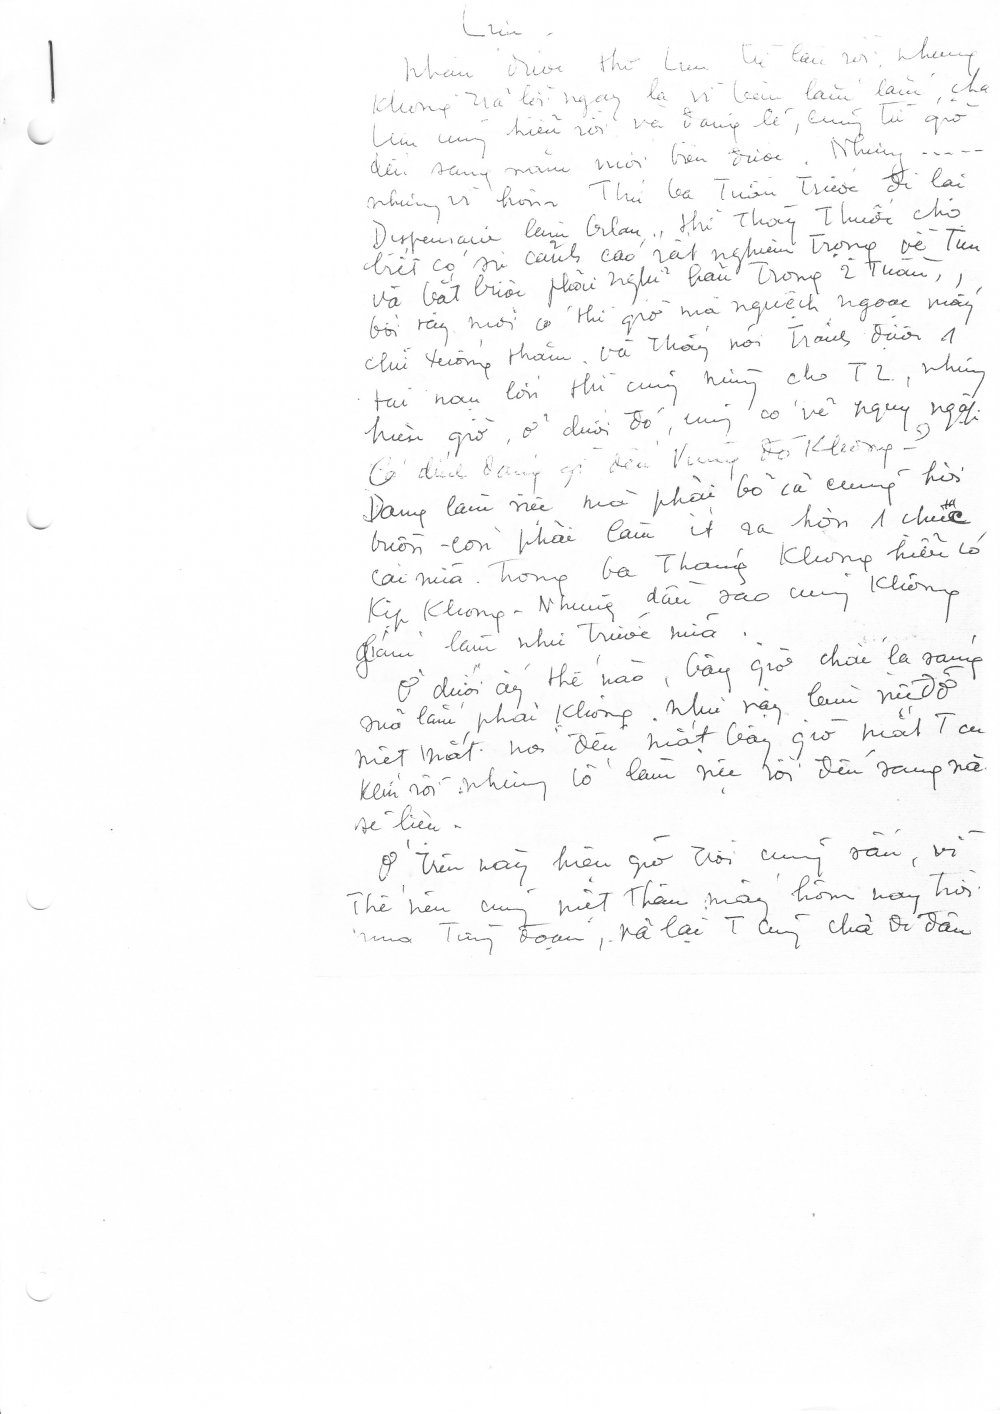 Liên.
Nhận được thơ Liên từ lâu rồi, nhưng
không trả lời ngay là vì bận lắm lắm, chả
Liên cũng hiểu rồi và đáng lẽ, cũng từ giờ
đến sang năm mới biên được. Nhưng -----
nhưng vì hôm Thứ ba Tuần Trước đi lại
Dispensaire làm bilan, thì Thầy Thuốc cho
biết có sự cảnh cáo rất nghiêm Trọng về Tim
và bắt buộc phải nghỉ hẳn Trong 2 Tuần,
bởi vậy mới có thì giờ mà nguệch ngoạc mấy
chữ xuống thăm. và Thấy nói Tránh được 1
tai nạn lớn thì cũng mừng cho T L, nhưng
hiện giờ, ở dưới đó, cũng có vẻ nguy ngập.
Có dính dáng gì đến Vùng đó Không - ?
Đang làm việc mà phải bỏ cả cũng hơi
buồn - còn phải làm ít ra hơn 1 chục
cái nữa. Trong ba Tháng Không hiểu có
Kịp Không - Nhưng dầu sao cũng Không
giám làm như Trước nữa.
Ở dưới ấy thế nào, bây giờ chắc là sáng
sủa lắm phải Không. như vậy làm việc đỡ
mệt mắt. nói đến mắt bây giờ mắt T cũ
kém rồi nhưng cố làm việc rồi đến sang năm
sẽ liệu -
Ở Trên này hiện giờ Trời cũng xấu, vì
Thế nên cũng mệt Thêm mấy hôm nay Trời
mưa Từng đoạn, và lại T cũng chả đi đâu